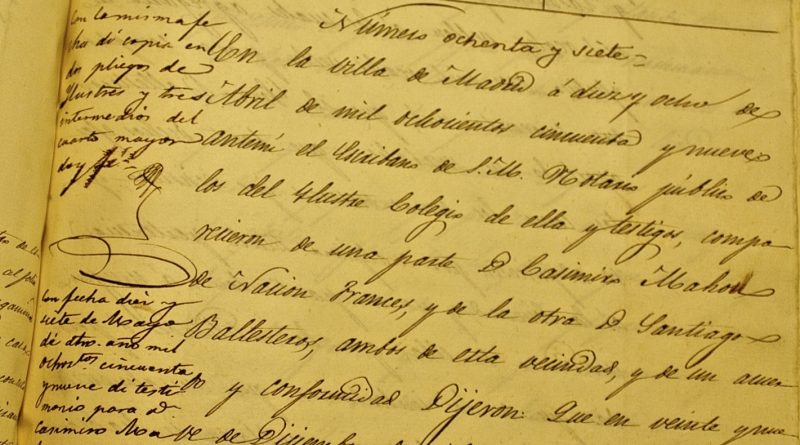 Con la misma fe
cha di copia en
dos pliegos de
Ylustres y tres
intermedios del
cuarto mayor
doy fe=
Número ochenta y siete=
En la villa de Madrid á diez y ocho de
Abril de mil ochocientos cincuenta y nueve
antemi el Escribano de S. M. Notario público de
los del Ilustre Colegio de ella y testigos, compa-
recieron de una parte D. Casimiro Mahou
de Nacion Frances, y de la otra D. Santiago
Ballesteros, ambos de esta vecindad, y de un acuer-
do y conformidad Dijeron: Que en veinte y nue
ve de Diciembre
Con fecha diez y
siete de Mayo
de dho. año mil
ochostos cincuenta
y nueve di testi
monio para D.
Casimiro Ma